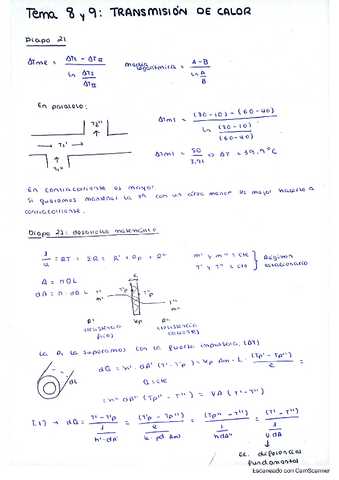 Tema 8 y 9: TRANSMISIÓN DE CALOR
Diapo 21
ΔTme = ΔTI - ΔTII / ln ΔTI / ΔTII
media logarítmica = A-B / ln A/B
En paralelo:
ΔTml = (90-10) - (60-40) / ln (90-10) / (60-40)
T2''
→ T1' →
T1''
ΔTml = ⇒ ΔT = 39.9°C
En contracorriente es mayor.
Si queremos mantener la Tª con un área menor es mejor hacerlo a
contracorriente.
Diapo 23: desarrollo matemático
1/u = RT = ΣR = R' + Rp + R''
m' y m'' = cte
T' y T'' = cte
Régimen
estacionario
A = πDL
dA = π·dDL
T'
m'
T'p
T''p
T''
m''
R'
(resistencia
kp
R''
(resistencia
La A, la suponemos con la fuerza impulsora, (ΔT)
dL
dQ = h'·dA' (T'-T'p) = kp Am · L · (Tp'-Tp'') / e =
Q = cte
= h'' dA'' (Tp''-T'') = UA (T'-T'')
[1] → dQ = T'-T'p / 1 / h'·dA' = (T'p-Tp'') / e / k·pd·Am = (Tp''-T'') / 1 / hdA'' = (T'-T'') / 1 / U dA
ec. diferencial
fundamental
Escaneado con CamScanner